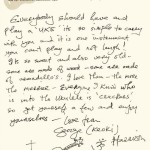 Everybody should have and
play a 'UKE' its so simple to carry
with you and it is one instrument
you can't play and not laugh!
It's so sweet and also very old-
some are made of wood - some are made
of armadillo's. I love them - the more
the merrier - Everyone I know who
is into the Ukulele is 'crackers'
so get yourself a few and enjoy
yourselves - Love from
George (Keoki)
Harrison